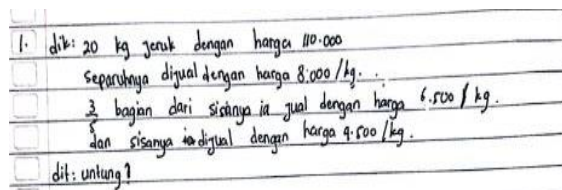 1. dik: 20 kg jeruk dengan harga 110.000
separuhnya dijual dengan harga 8.000/kg.
3/5 bagian dari sisanya ia jual dengan harga 6.500/kg.
dan sisanya dijual dengan harga 4.500/kg.
dit: untung?